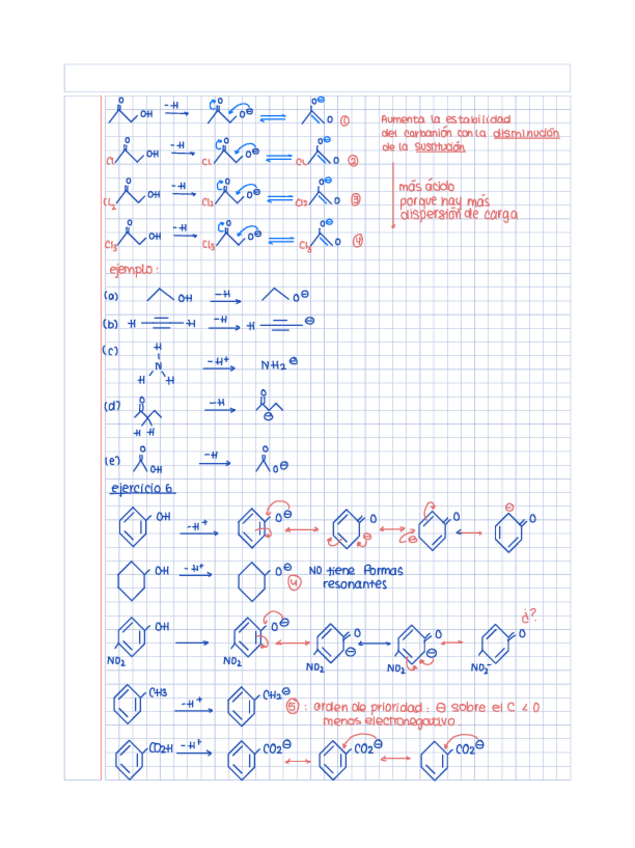 O OH -H O O⊖ O⊖ O ①
Aumenta la estabilidad
del carbanión con la disminución
de la sustitución
Cl O OH -H Cl O O⊖ Cl O⊖ O ②
más ácido
porque hay más
dispersión de carga
Cl2 O OH -H Cl2 O O⊖ Cl2 O⊖ O ③
Cl3 O OH -H Cl3 O O⊖ Cl3 O⊖ O ④
ejemplo:
(a) OH -H O⊖
(b) H H -H H ⊖
(c) H N H H -H+ NH2⊖
(d) O H H -H O ⊖
(e) O OH -H O O⊖
ejercicio 6
OH -H+ O⊖ O ⊖ ⊖ O ⊖ O
OH -H+ O⊖ ④ NO tiene formas
resonantes
¿?
OH O⊖ O ⊖ O ⊖ O
NO2 NO2 NO2 NO2 NO2-
CH3 -H+ CH2⊖ ⑤ : orden de prioridad: ⊖ sobre el C < O
menos electronegativo
CO2H -H+ CO2⊖ CO2⊖ CO2⊖